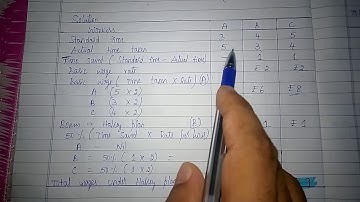 Solution
Workers A B C
Standard time 2 4 5
Actual time taken 5 3 4
Time saved (Standard time - Actual time) 1 1
Basic wage rate ₹2 ₹2
Basic wages (Time taken x Rate) (A)
A (5 x 2)
B (3 x 2) ₹6
C (4 x 2) ₹8
Bonus - Halsey plan (B)
50% (Time Saved x Rate
A - Nil
B = 50% (1 x 2) =
C = 50% (1 x 2)
Total wages under Halsey plan 9